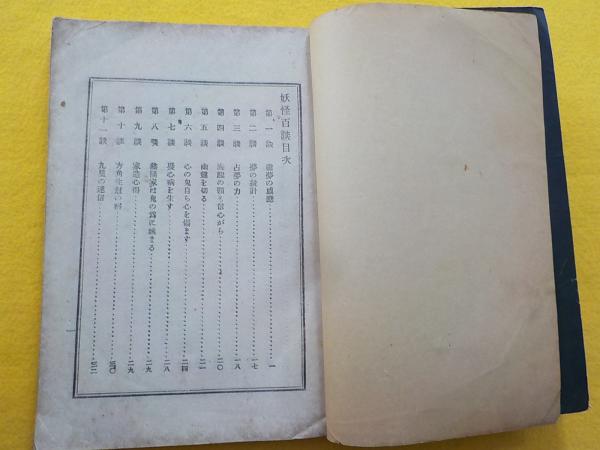 妖怪百談目次
第一談 霊夢の感應 一
第二談 夢の統計 一七
第三談 占夢の力 一八
第四談 の頭も信心から 二〇
第五談 幽靈を切る 二一
第六談 心の鬼自ら心を惱ます 二四
第七談 疑心病を生す 二八
第八談 家は鬼の爲に まる 二九
第九談 家造心得 二九
第十談 方角生尅の 三〇
第十一談 九星の迷信 三二